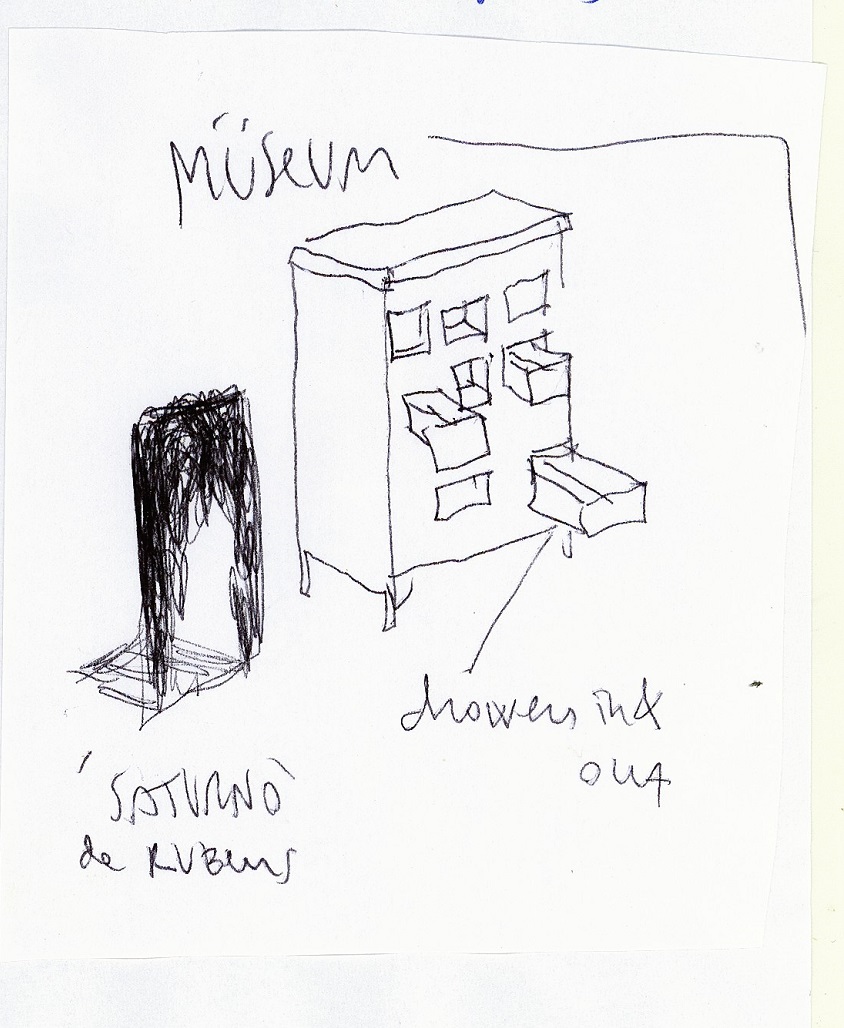 MÜSEUM
drowers in &
out
'SATURNO'
de RUBENS